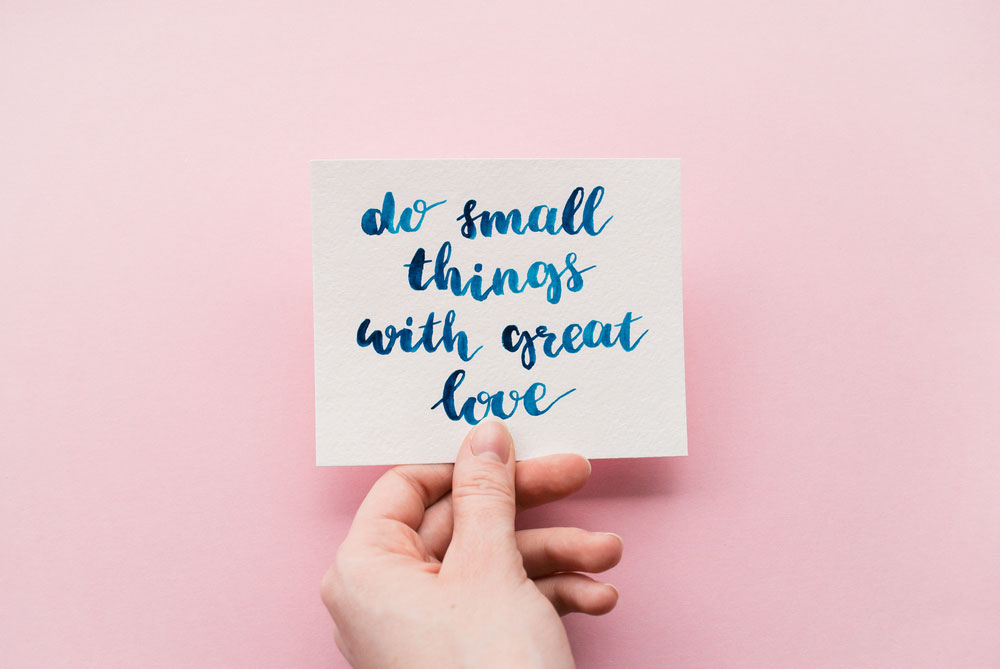 do small
things
with great
love